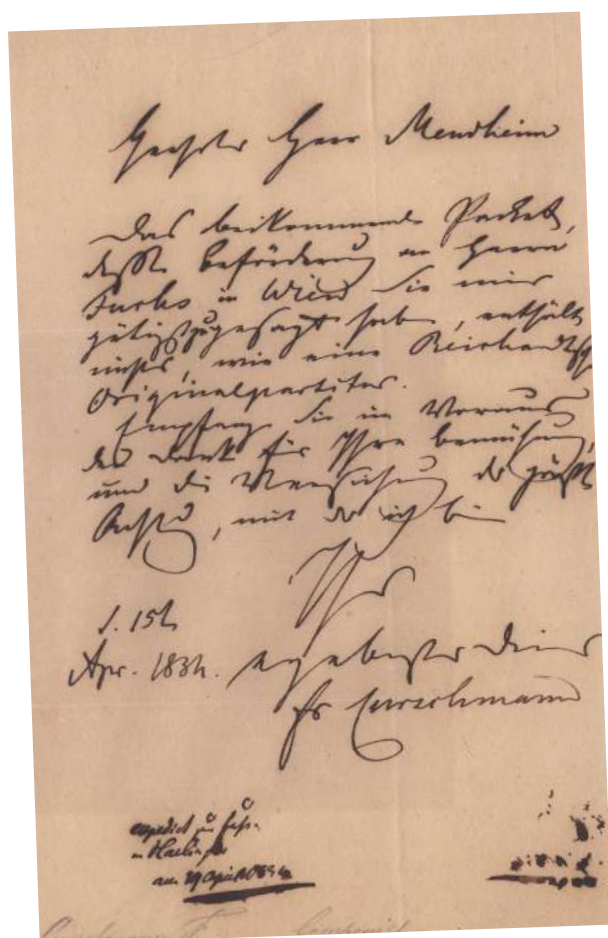 Geehrter Herr Mendheim
Das beikommende Packet,
deßen Beförderung an Herrn
Fuchs in Wien Sie mir
gütigst zugesagt haben, enthält
nichts, wie eine Reichardtsche
Originalpartitur.
Empfangen Sie im Voraus
den Dank für Ihre Bemühung,
und die Versicherung der größten
Achtung, mit der ich bin
Ihr
d. 15t
Apr. 1834. ergebenster Diener
Fr Curschmann
expedirt
am 29 April 1834